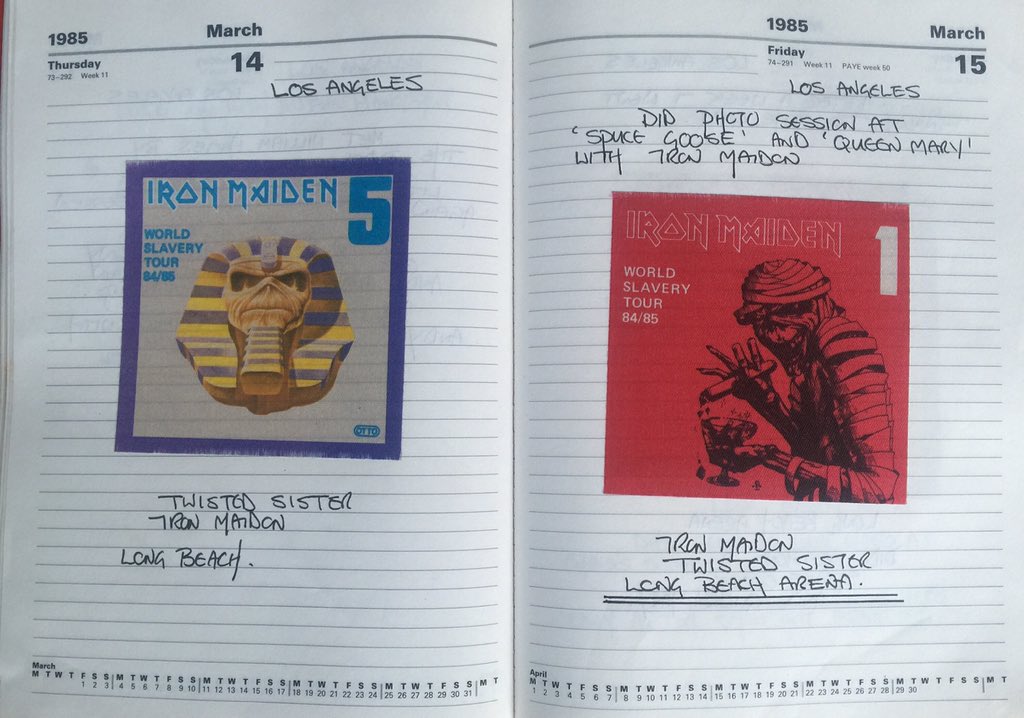 1985
March
Thursday
14
73-292 Week 11
LOS ANGELES
IRON MAIDEN
5
WORLD
SLAVERY
TOUR
84/85
OTTO
TWISTED SISTER
IRON MAIDON
LONG BEACH.
March
M T W T F S S M T W T F S S M T W T F S S M T W T F S S M T W T F S S M T
1 2 3 4 5 6 7 8 9 10 11 12 13 14 15 16 17 18 19 20 21 22 23 24 25 26 27 28 29 30 31
1985
March
Friday
15
74-291 Week 11 PAYE week 50
LOS ANGELES
DID PHOTO SESSION AT
'SPUCE GOOSE' AND 'QUEEN MARY'
WITH IRON MAIDON
IRON MAIDEN
1
WORLD
SLAVERY
TOUR
84/85
IRON MAIDON
TWISTED SISTER
LONG BEACH ARENA.
April
M T W T F S S M T W T F S S M T W T F S S M T W T F S S M T W T F S S M T
1 2 3 4 5 6 7 8 9 10 11 12 13 14 15 16 17 18 19 20 21 22 23 24 25 26 27 28 29 30